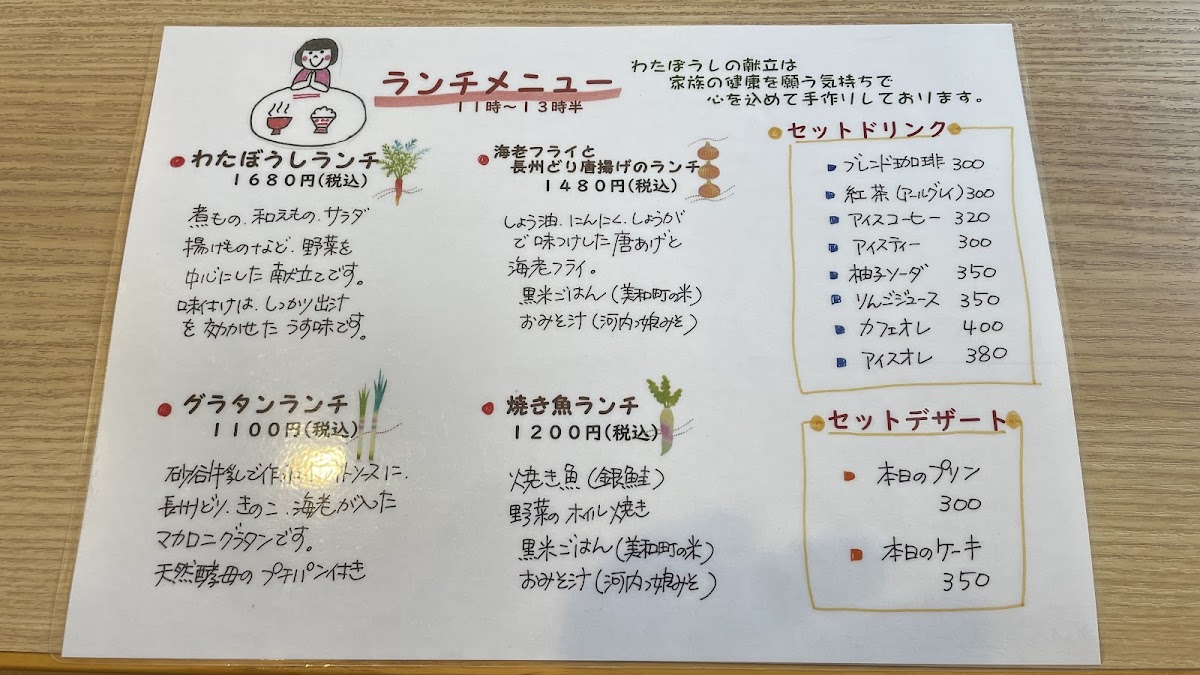 ランチメニュー
11時～13時半
わたぼうしの献立は
家族の健康を願う気持ちで
心を込めて手作りしております。
わたぼうしランチ
1680円(税込)
煮もの、和えもの、サラダ
揚げものなど、野菜を
中心にした献立です。
味付けは、しっかり出汁
を効かせたうす味です。
海老フライと
長州どり唐揚げのランチ
1480円(税込)
しょう油、にんにく、しょうが
で味つけした唐あげと
海老フライ。
黒米ごはん(美和町の米)
おみそ汁(河内っ娘みそ)
グラタンランチ
1100円(税込)
砂谷牛乳で作った ソースに、
長州どり、きのこ、海老が入った
マカロニグラタンです。
天然酵母のプチパン付き
焼き魚ランチ
1200円(税込)
焼き魚(銀鮭)
野菜のホイル焼き
黒米ごはん(美和町の米)
おみそ汁(河内っ娘みそ)
セットドリンク
ブレンド珈琲 300
紅茶(アールグレイ)300
アイスコーヒー 320
アイスティー 300
柚子ソーダ 350
りんごジュース 350
カフェオレ 400
アイスオレ 380
セットデザート
本日のプリン
300
本日のケーキ
350